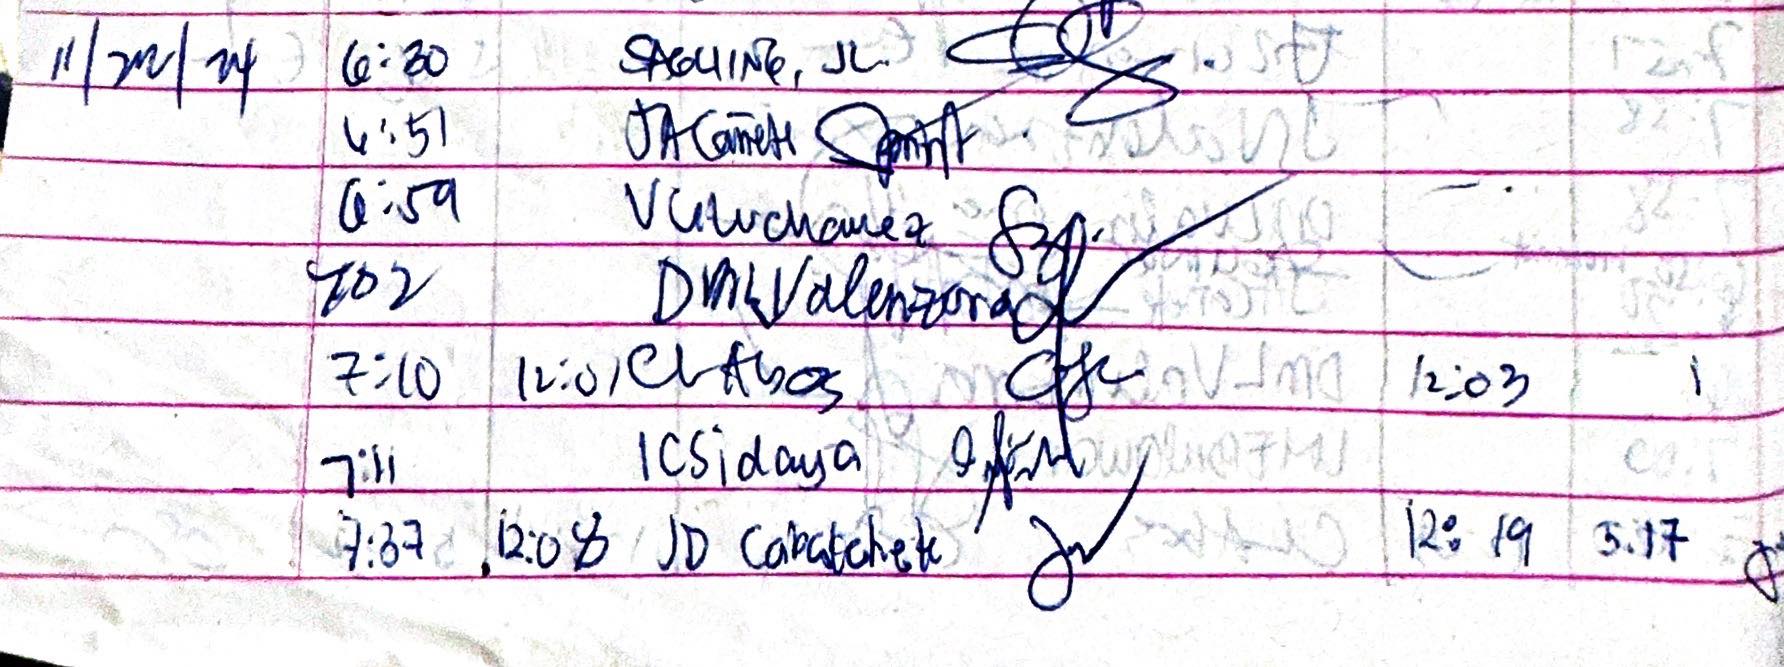 11/22/24 6:30 SAGUING, JL.
6:51 JACañete
6:59 VCLuchavez
702 DMLValenzona
7:10 12:01 CLAbos 12:03 1
7:11 ICSidaya
7:37 12:08 JD Cabatchete 12:19 5:17